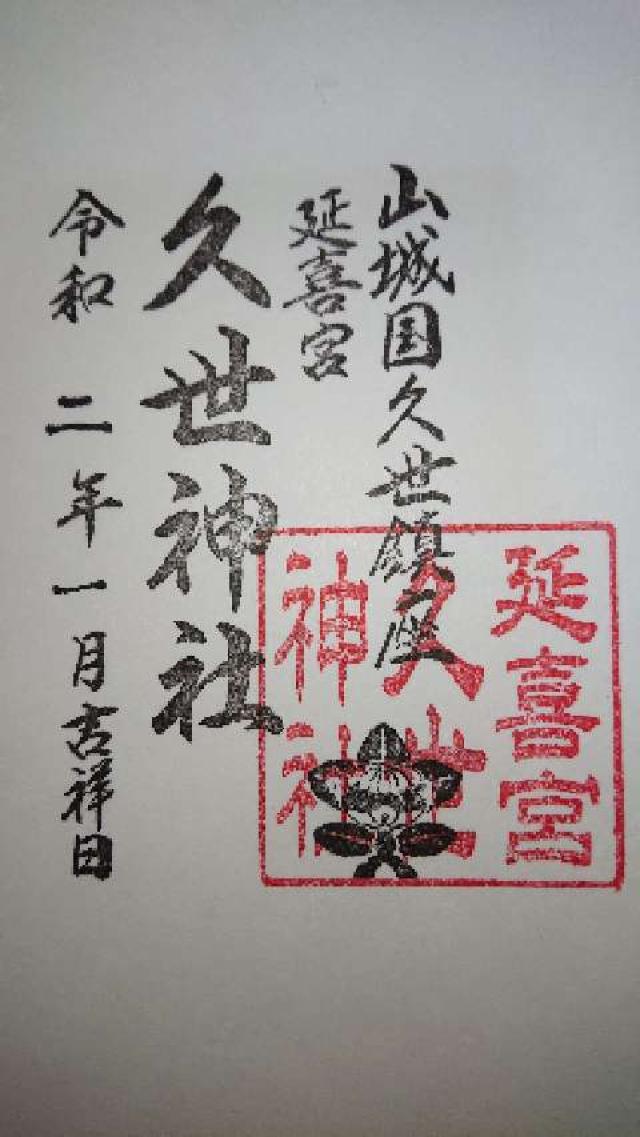 山城国久世鎮座
延喜宮
久世神社
令和 二年一月吉祥日
延喜宮
久世
神社